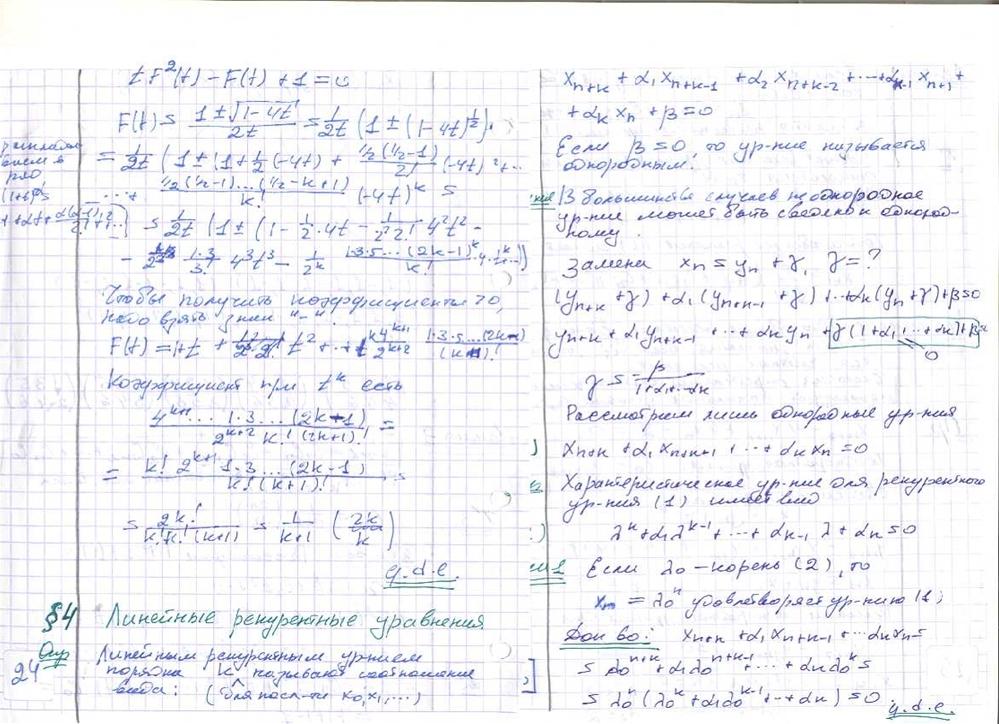 t F²(t) − F(t) + 1 = 0
F(t) = (1 ± √(1−4t)) / 2t = 1/2t (1 ± (1−4t)^{1/2}) =
= 1/2t (1 ± (1 + 1/2 (−4t) + (1/2 (1/2−1))/2! (−4t)² + ...
... + (1/2 (1/2−1) ... (1/2−k+1))/k! (−4t)^k =
= 1/2t (1 ± (1 − 1/2 · 4t − 1/(2² 2!) 4² t² −
− 1/2³ · (1·3)/3! 4³ t³ − 1/2^k (1·3·5...(2k−1))/k!
Чтобы получить коэффициенты >0,
надо взять знак "−".
F(t) = 1 + t +
Коэффициент при t^k есть
(4^{k+1} ... 1·3 ... (2k−1)) / (2^{k+2} k! (2k+1)!) =
= (k! 2^{k+1} 1·3 ... (2k−1)) / (k! (k+1)!) =
= 2k! / (k! k! (k+1)) = 1/(k+1) (2k k)
q.d.e.
§4 Линейные рекурентные уравнения
Опр Линейным рекурентным ур-нием
порядка k называют соотношение
вида: (для посл-ти x₀, x₁, ...)
24
x_{n+k} + α₁ x_{n+k−1} + α₂ x_{n+k−2} + ... + α_{k−1} x_{n+1} +
+ α_k x_n + β = 0
Если β = 0, то ур-ние называется
однородным.
В большинстве случаев неоднородное
ур-ние может быть сведено к однород-
ному.
Замена x_n = y_n + γ, γ = ?
(y_{n+k} + γ) + α₁ (y_{n+k−1} + γ) + ... α_k (y_n + γ) + β = 0
y_{n+k} + α₁ y_{n+k−1} + ... + α_k y_n + γ (1 + α₁ ... + α_k) + β =
0
γ = − β / (1 + α₁ + ... α_k)
Рассмотрим лишь однородные ур-ния
) x_{n+k} + α₁ x_{n+k−1} + ... + α_k x_n = 0
Характеристическое ур-ние для рекурентного
ур-ния (1) имеет вид
:) λ^k + α₁ λ^{k−1} + ... + α_{k−1} λ + α_k = 0
Если λ₀ − корень (2), то
x_n = λ₀^n удовлетворяет ур-нию (1)
Док-во: x_{n+k} + α₁ x_{n+k−1} + ... α_k x_n =
= λ₀^{n+k} + α₁ λ₀^{n+k−1} + ... + α_k λ₀^n =
= λ₀^n (λ₀^k + α₁ λ₀^{k−1} + ... + α_k) = 0 q.d.e.